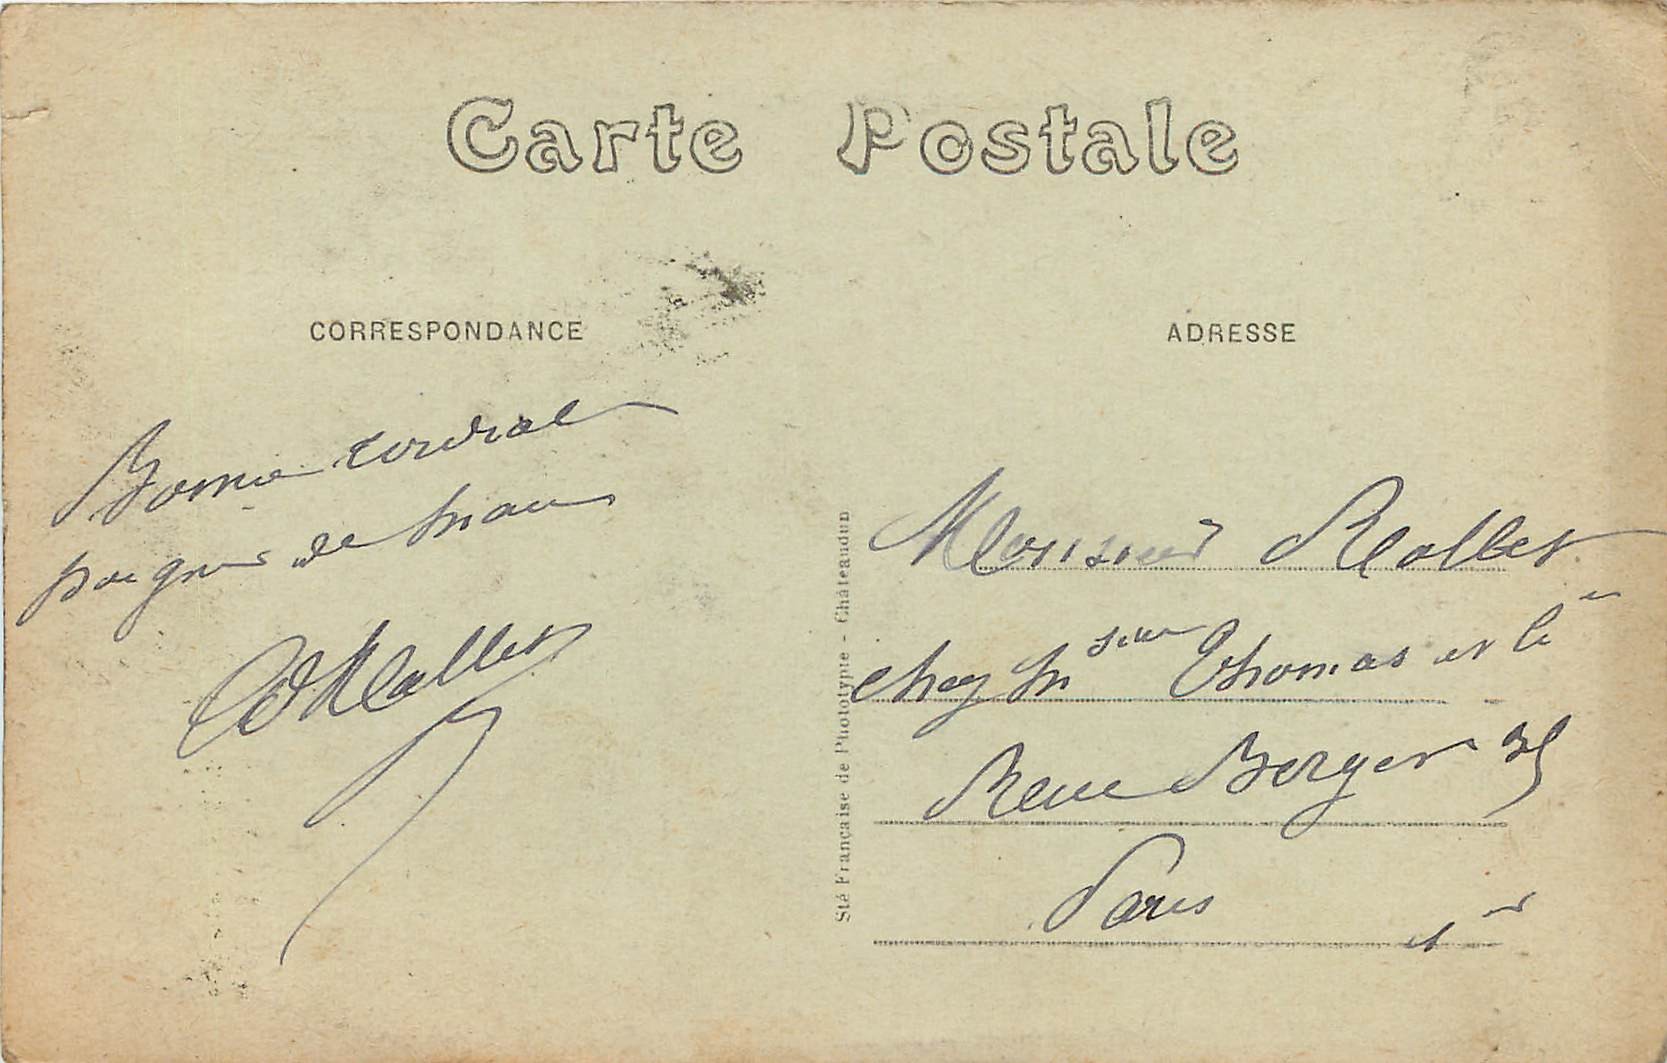 Carte Postale
CORRESPONDANCE
Bonne cordial
poigne de main
Rollet
Sté Française de Phototypie - Châteaudun
ADRESSE
Monsieur Rollet
chez Msieur Thomas et Cie
Rue Berger
Paris 1er